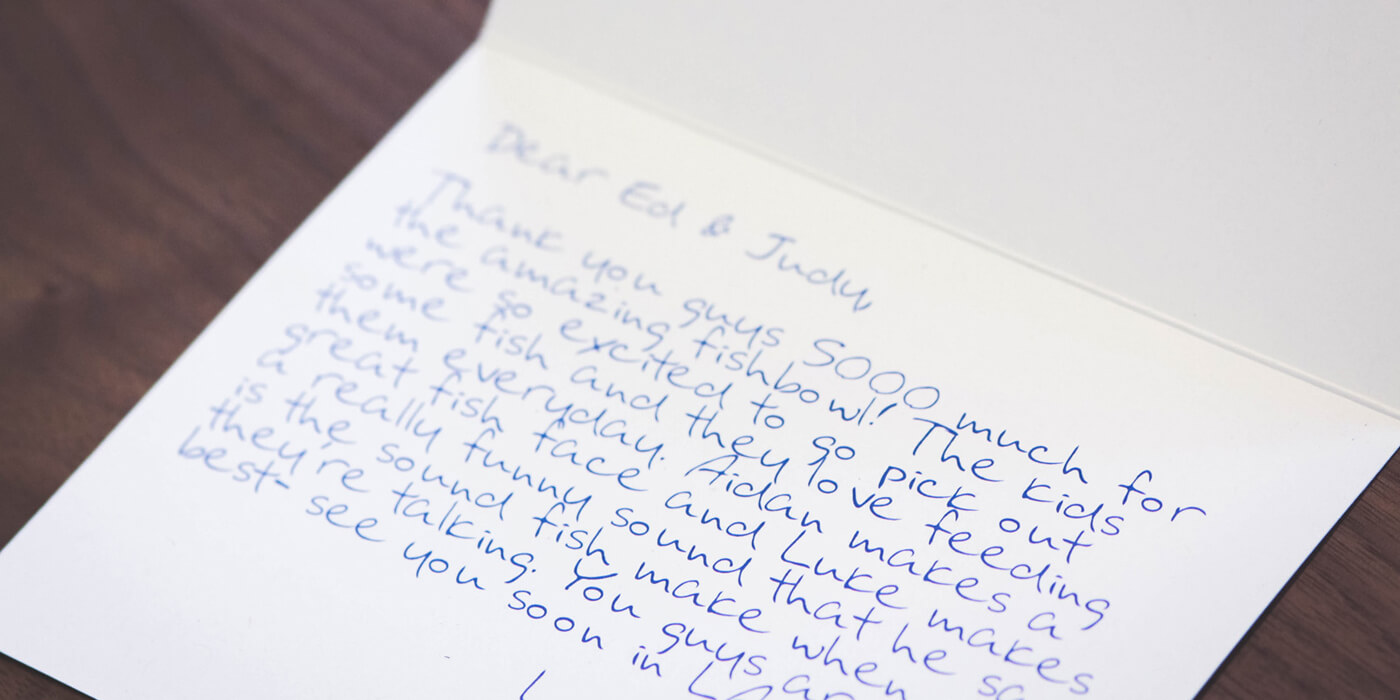 Dear Ed & Judy,
Thank you guys SOOO much for
the amazing fishbowl! The kids
were so excited to go pick out
some fish and they love feeding
them everyday. Aidan makes a
great fish face and Luke makes
a really funny sound that he
is the sound fish make when
they're talking. You guys
best- see you soon in